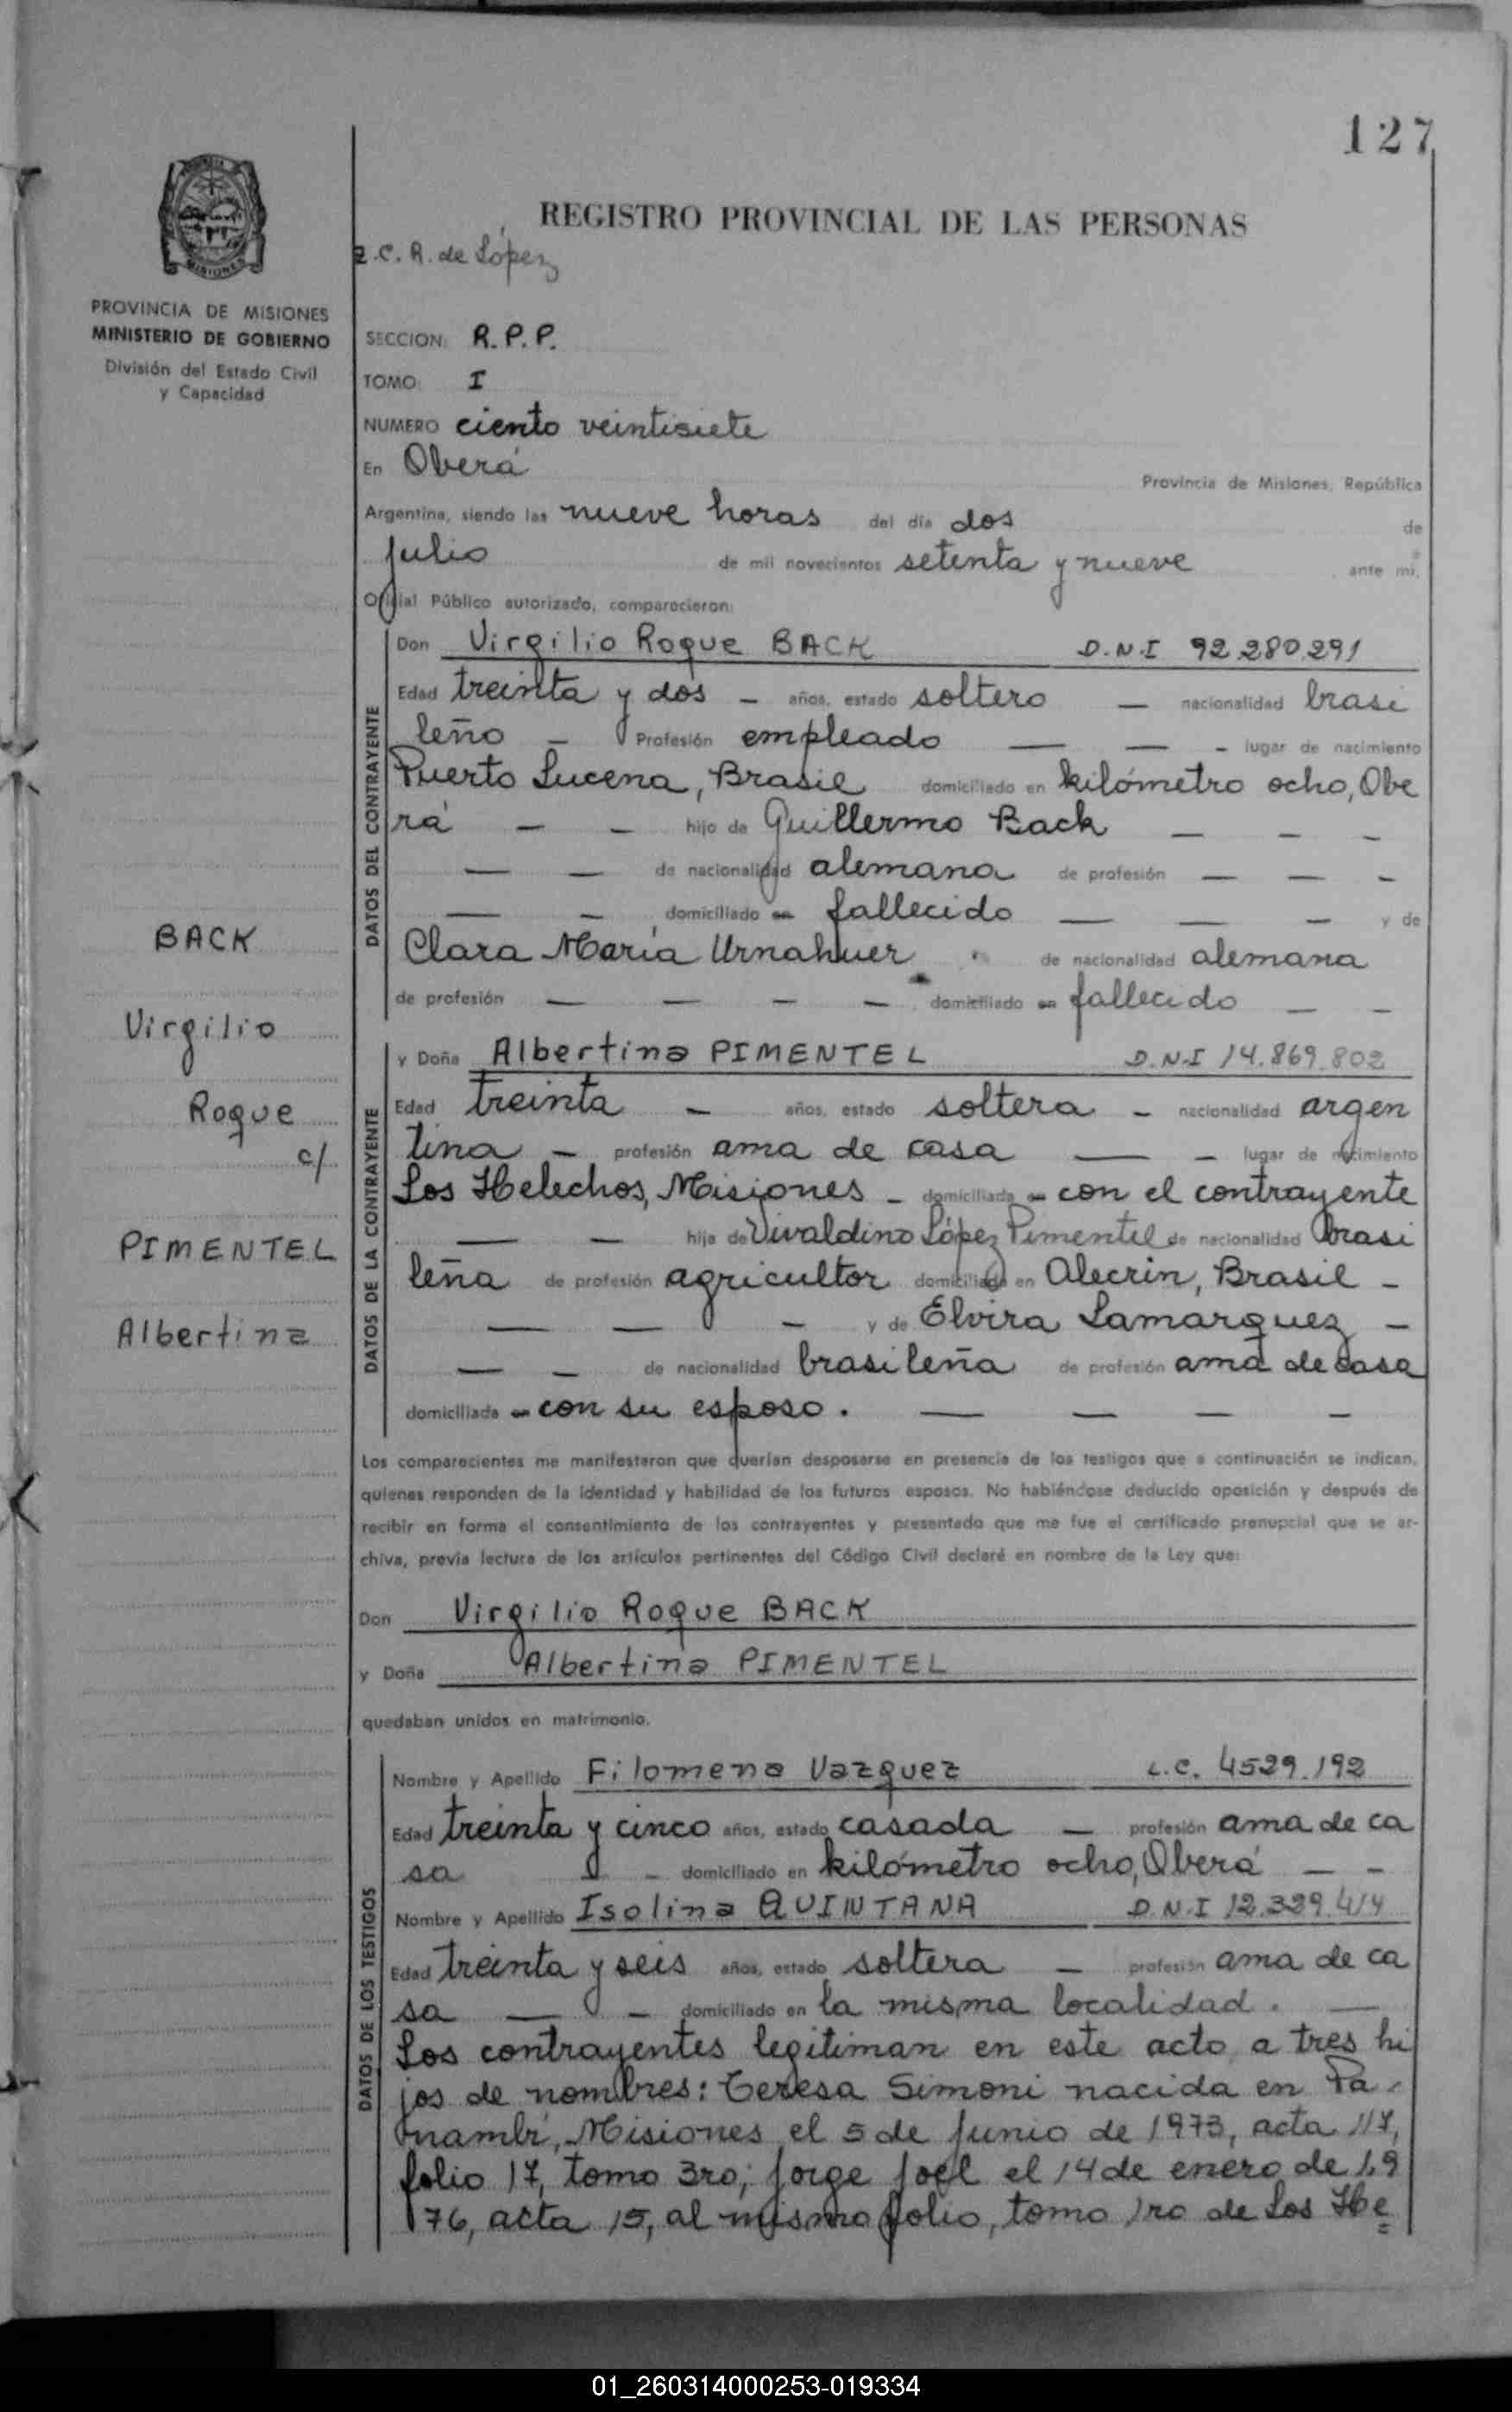 127
REGISTRO PROVINCIAL DE LAS PERSONAS
C. A. de López
PROVINCIA DE MISIONES
MINISTERIO DE GOBIERNO
División del Estado Civil
y Capacidad
SECCION: R. P. P.
TOMO I
NUMERO ciento veintisiete
En Oberá
Provincia de Misiones, República
Argentina, siendo las nueve horas del día dos de
julio de mil novecientos setenta y nueve ante mí,
Oficial Público autorizado, comparecieron:
DATOS DEL CONTRAYENTE
Don Virgilio Roque BACK D.N.I 92.280.291
Edad treinta y dos — años, estado soltero — nacionalidad brasi
leño — Profesión empleado — — — lugar de nacimiento
Puerto Lucena, Brasil domiciliado en kilómetro ocho, Obe
rá — — hijo de Guillermo Back — — —
— — de nacionalidad alemana de profesión — — —
— — domiciliado en fallecido — — — y de
Clara María Urnahuer de nacionalidad alemana
de profesión — — — — domiciliado en fallecido — —
BACK
Virgilio
Roque
c/
PIMENTEL
Albertina
DATOS DE LA CONTRAYENTE
y Doña Albertina PIMENTEL D.N.I 14.869.802
Edad treinta — años, estado soltera — nacionalidad argen
tina — profesión ama de casa — — lugar de nacimiento
Los Helechos, Misiones — domiciliada en con el contrayente
— — hija de Vivaldino López Pimentel de nacionalidad brasi
leña de profesión agricultor domiciliado en Alecrin, Brasil —
— — — y de Elvira Lamarquez —
— — de nacionalidad brasileña de profesión ama de casa
domiciliada en con su esposo. — — — —
Los comparecientes me manifestaron que querían desposarse en presencia de los testigos que a continuación se indican,
quienes responden de la identidad y habilidad de los futuros esposos. No habiéndose deducido oposición y después de
recibir en forma el consentimiento de los contrayentes y presentado que me fue el certificado prenupcial que se ar-
chiva, previa lectura de los artículos pertinentes del Código Civil declaré en nombre de la Ley que:
Don Virgilio Roque BACK
y Doña Albertina PIMENTEL
quedaban unidos en matrimonio.
DATOS DE LOS TESTIGOS
Nombre y Apellido Filomena Vazquez L.C. 4529.192
Edad treinta y cinco años, estado casada — profesión ama de ca
sa — domiciliado en kilómetro ocho, Oberá — —
Nombre y Apellido Isolina QUINTANA D.N.I 12.339.414
Edad treinta y seis años, estado soltera — profesión ama de ca
sa — — domiciliado en la misma localidad. —
Los contrayentes legitiman en este acto a tres hi
jos de nombres: Teresa Simoni nacida en Pa-
nambí, Misiones el 5 de junio de 1973, acta 117,
folio 17, tomo 3ro; Jorge Joel el 14 de enero de 19
76, acta 15, al mismo folio, tomo 1ro de Los He
01_260314000253-019334